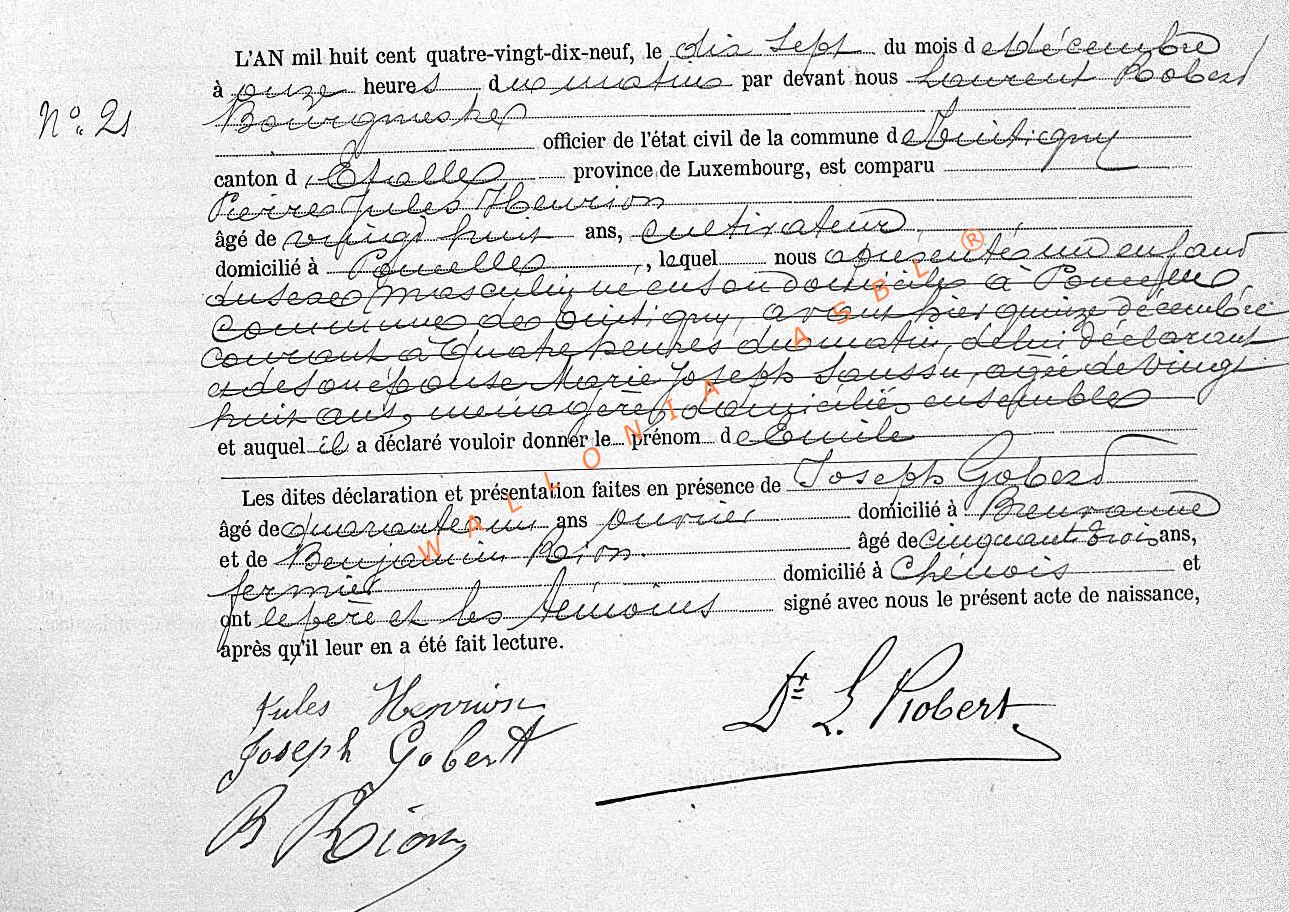 L'AN mil huit cent quatre-vingt-dix-neuf, le dix sept du mois de décembre
à onze heures du matin par devant nous Laurent Robert
N° 21
Bourgmestre
officier de l'état civil de la commune de Tintigny
canton d'Etalle province de Luxembourg, est comparu
Pierre Jules Henrion
âgé de vingt huit ans, cultivateur
domicilié à Poncelle, lequel nous a présenté un enfant
du sexe masculin, né en son domicile à Poncelle
commune de Tintigny, avant hier quinze décembre
courant à quatre heures du matin, de lui déclarant
et de son épouse Marie Joseph Saussu, âgée de vingt
huit ans, ménagère, domiciliés ensemble
et auquel il a déclaré vouloir donner le prénom de Emile
Les dites déclaration et présentation faites en présence de Joseph Gobert
âgé de quarante un ans ouvrier domicilié à Breuvanne
et de Benjamin Rion âgé de cinquante trois ans,
fermier domicilié à Chénois et
ont le père et les témoins signé avec nous le présent acte de naissance,
après qu'il leur en a été fait lecture.
Jules Henrion
Dr L Robert
Joseph Gobert
B Rion
WALLONIA ASBL ®